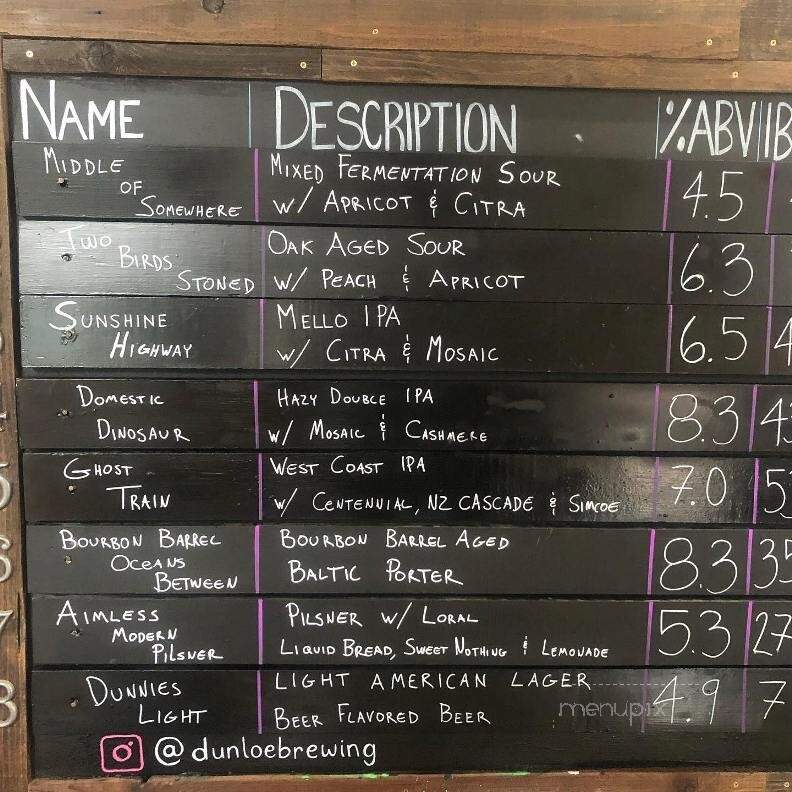 NAME DESCRIPTION %ABV IB
MIDDLE OF SOMEWHERE
MIXED FERMENTATION SOUR
W/ APRICOT & CITRA
4.5
TWO BIRDS STONED
OAK AGED SOUR
W/ PEACH & APRICOT
6.3
SUNSHINE HIGHWAY
MELLO IPA
W/ CITRA & MOSAIC
6.5 4
DOMESTIC DINOSAUR
HAZY DOUBLE IPA
W/ MOSAIC & CASHMERE
8.3 43
5
GHOST TRAIN
WEST COAST IPA
W/ CENTENNIAL, NZ CASCADE & SIMCOE
7.0 5
6
BOURBON BARREL OCEANS BETWEEN
BOURBON BARREL AGED
BALTIC PORTER
8.3 35
7
AIMLESS MODERN PILSNER
PILSNER W/ LORAL
LIQUID BREAD, SWEET NOTHING & LEMONADE
5.3 27
8
DUNNIES LIGHT
LIGHT AMERICAN LAGER
BEER FLAVORED BEER
4.9 7
menupix
@dunloebrewing